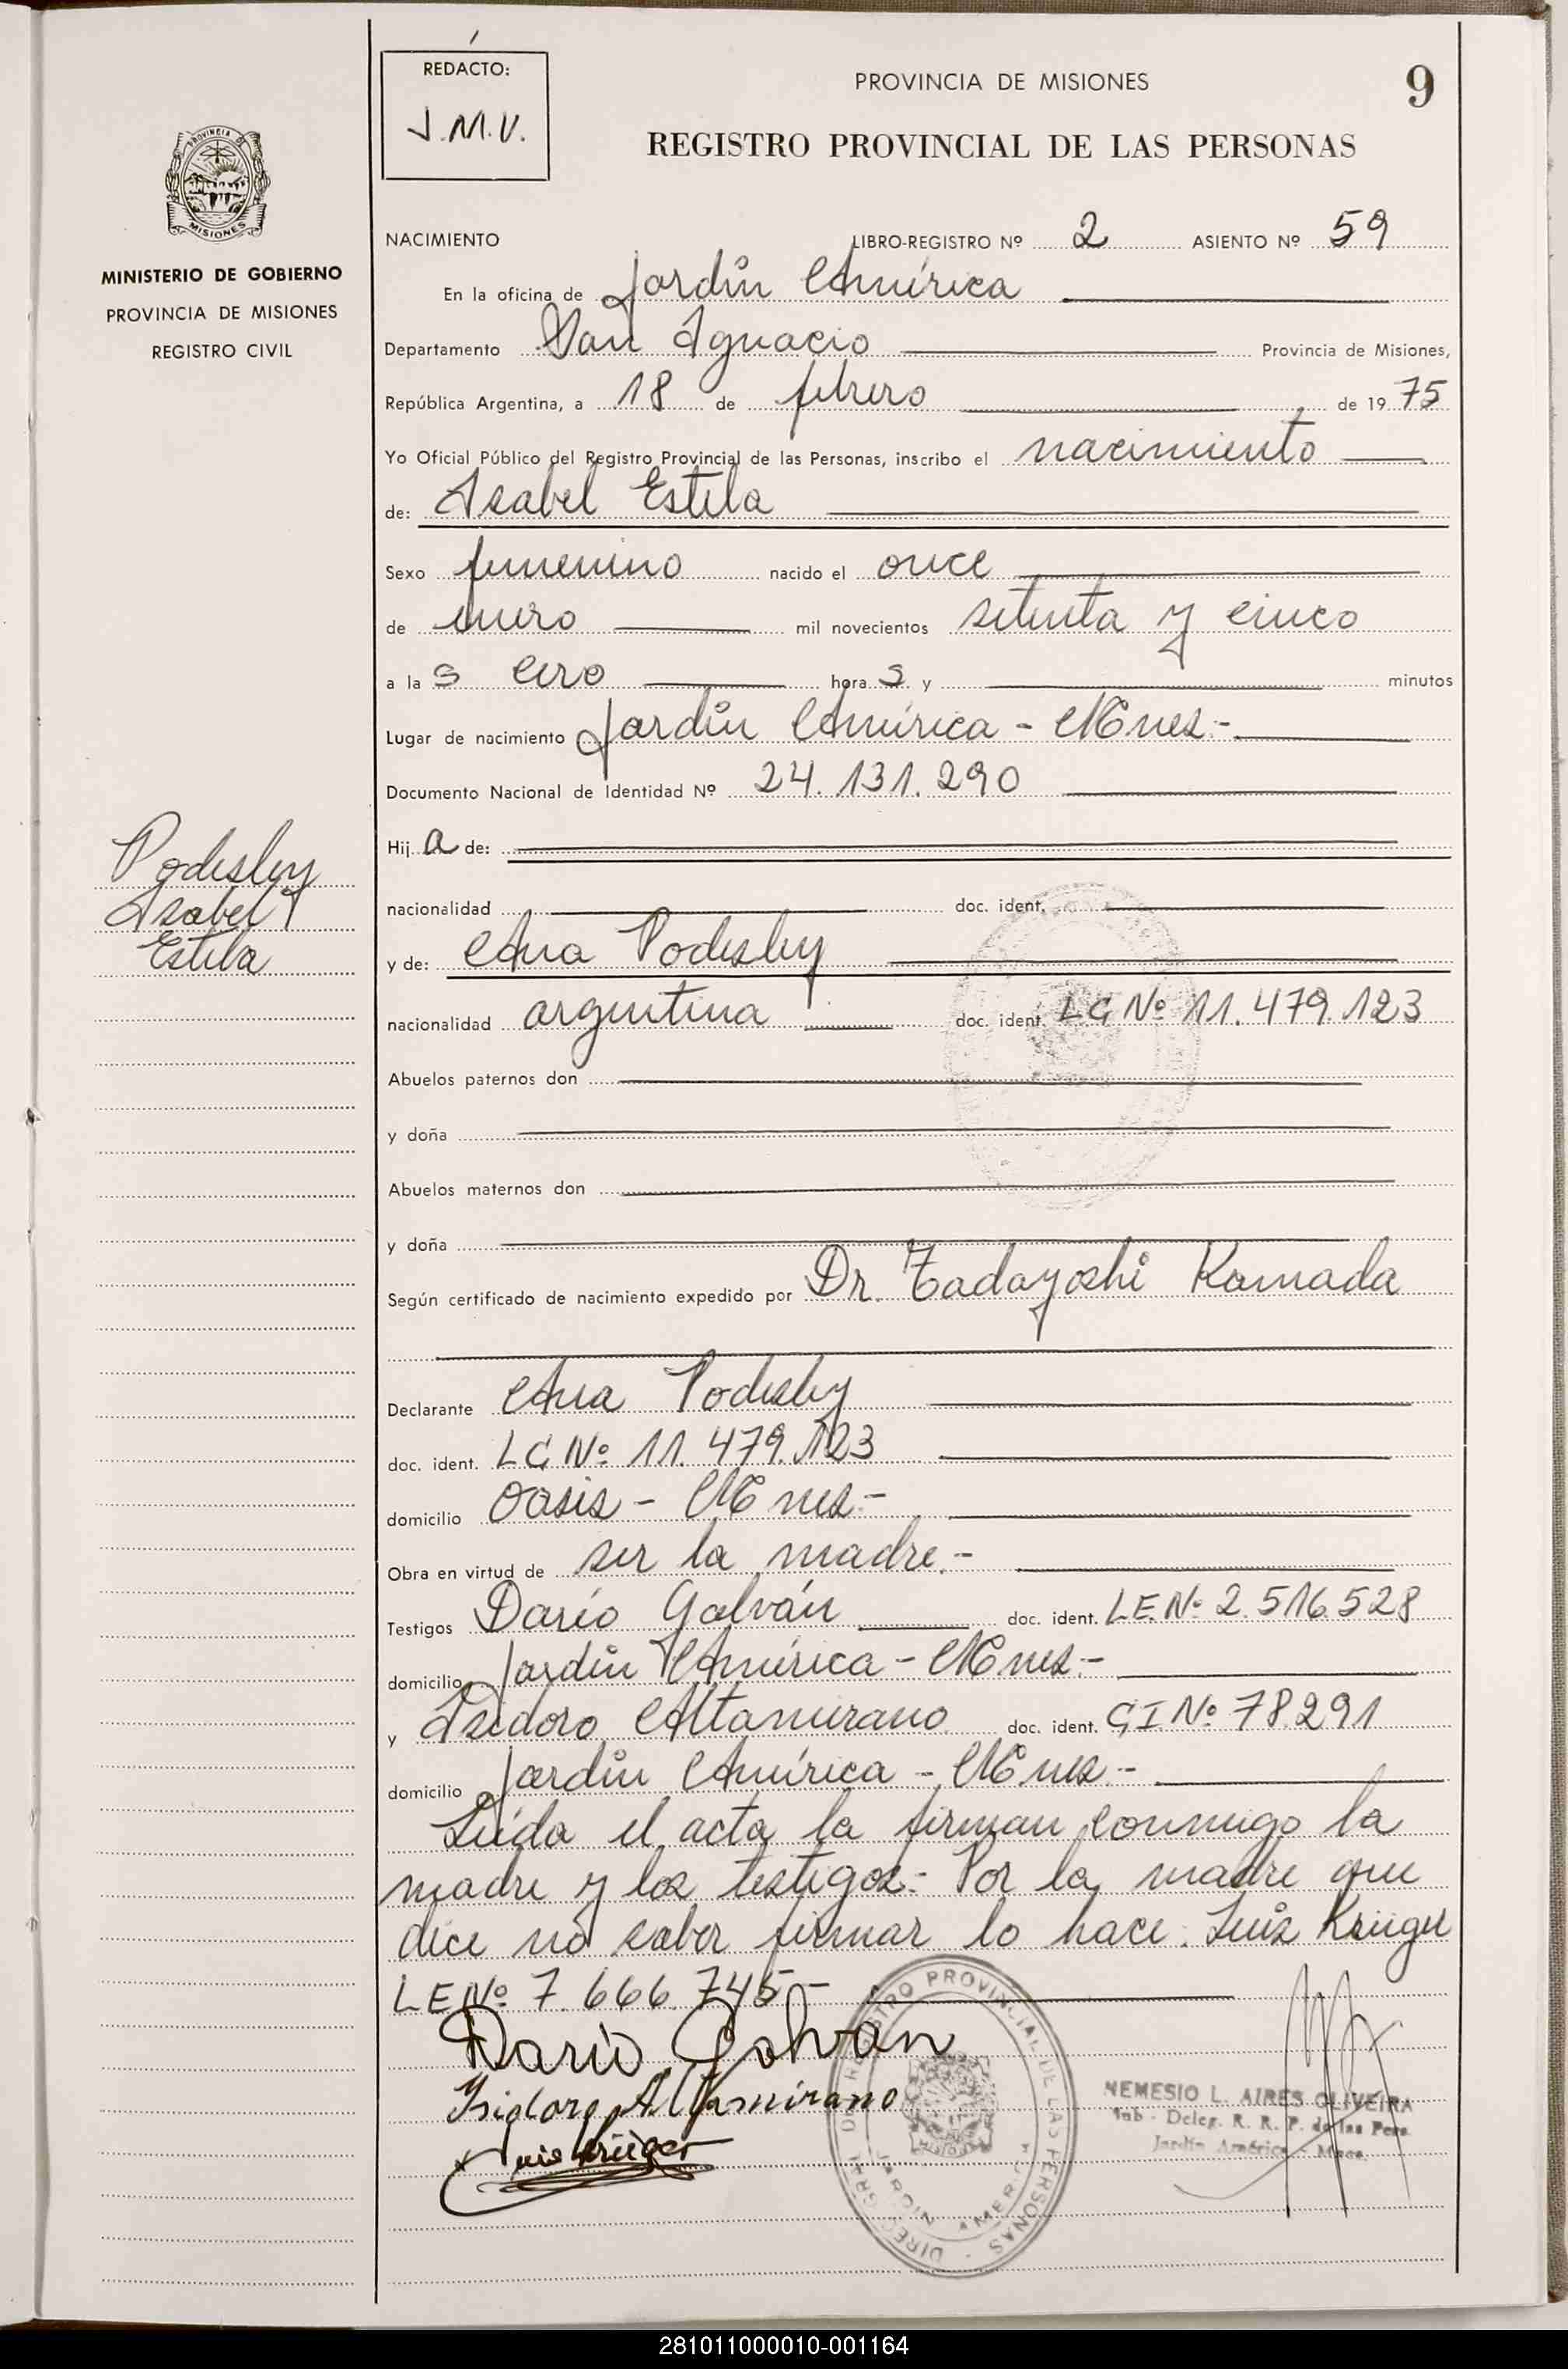 REDACTO:
J.M.V.
PROVINCIA DE MISIONES
9
REGISTRO PROVINCIAL DE LAS PERSONAS
PROVINCIA DE
MISIONES
MINISTERIO DE GOBIERNO
PROVINCIA DE MISIONES
REGISTRO CIVIL
NACIMIENTO LIBRO-REGISTRO Nº 2 ASIENTO Nº 59
En la oficina de Jardín América
Departamento San Ignacio Provincia de Misiones,
República Argentina, a 18 de febrero de 1975
Yo Oficial Público del Registro Provincial de las Personas, inscribo el nacimiento
de: Isabel Estela
Sexo femenino nacido el once
de enero mil novecientos setenta y cinco
a las cero horas y minutos
Lugar de nacimiento Jardín América - Mnes.-
Documento Nacional de Identidad Nº 24.131.290
Hija de:
Podesley
Isabel
Estela
nacionalidad doc. ident.
y de: Ana Podesley
nacionalidad argentina doc. ident. LC Nº 11.479.123
Abuelos paternos don
y doña
Abuelos maternos don
y doña
Según certificado de nacimiento expedido por Dr. Tadayoshi Kamada
Declarante Ana Podesley
doc. ident. LC Nº 11.479.123
domicilio Oasis - Mnes.-
Obra en virtud de ser la madre.-
Testigos Darío Galván doc. ident. LE.Nº 2.516.528
domicilio Jardín América - Mnes.-
y Isidoro Altamirano doc. ident. CI Nº 78.291
domicilio Jardín América - Mnes.-
Leída el acta la firman conmigo la
madre y los testigos.- Por la madre que
dice no saber firmar lo hace: Luis Krüger
LE Nº 7.666.745-
Dario Galvan
Isidoro Altamirano
Luis Krüger
REGISTRO PROVINCIAL DE LAS PERSONAS
JARDIN AMERICA
NEMESIO L. AIRES OLIVEIRA
Sub - Deleg. R. R. P. de las Pers.
Jardín América - Mnes.
281011000010-001164